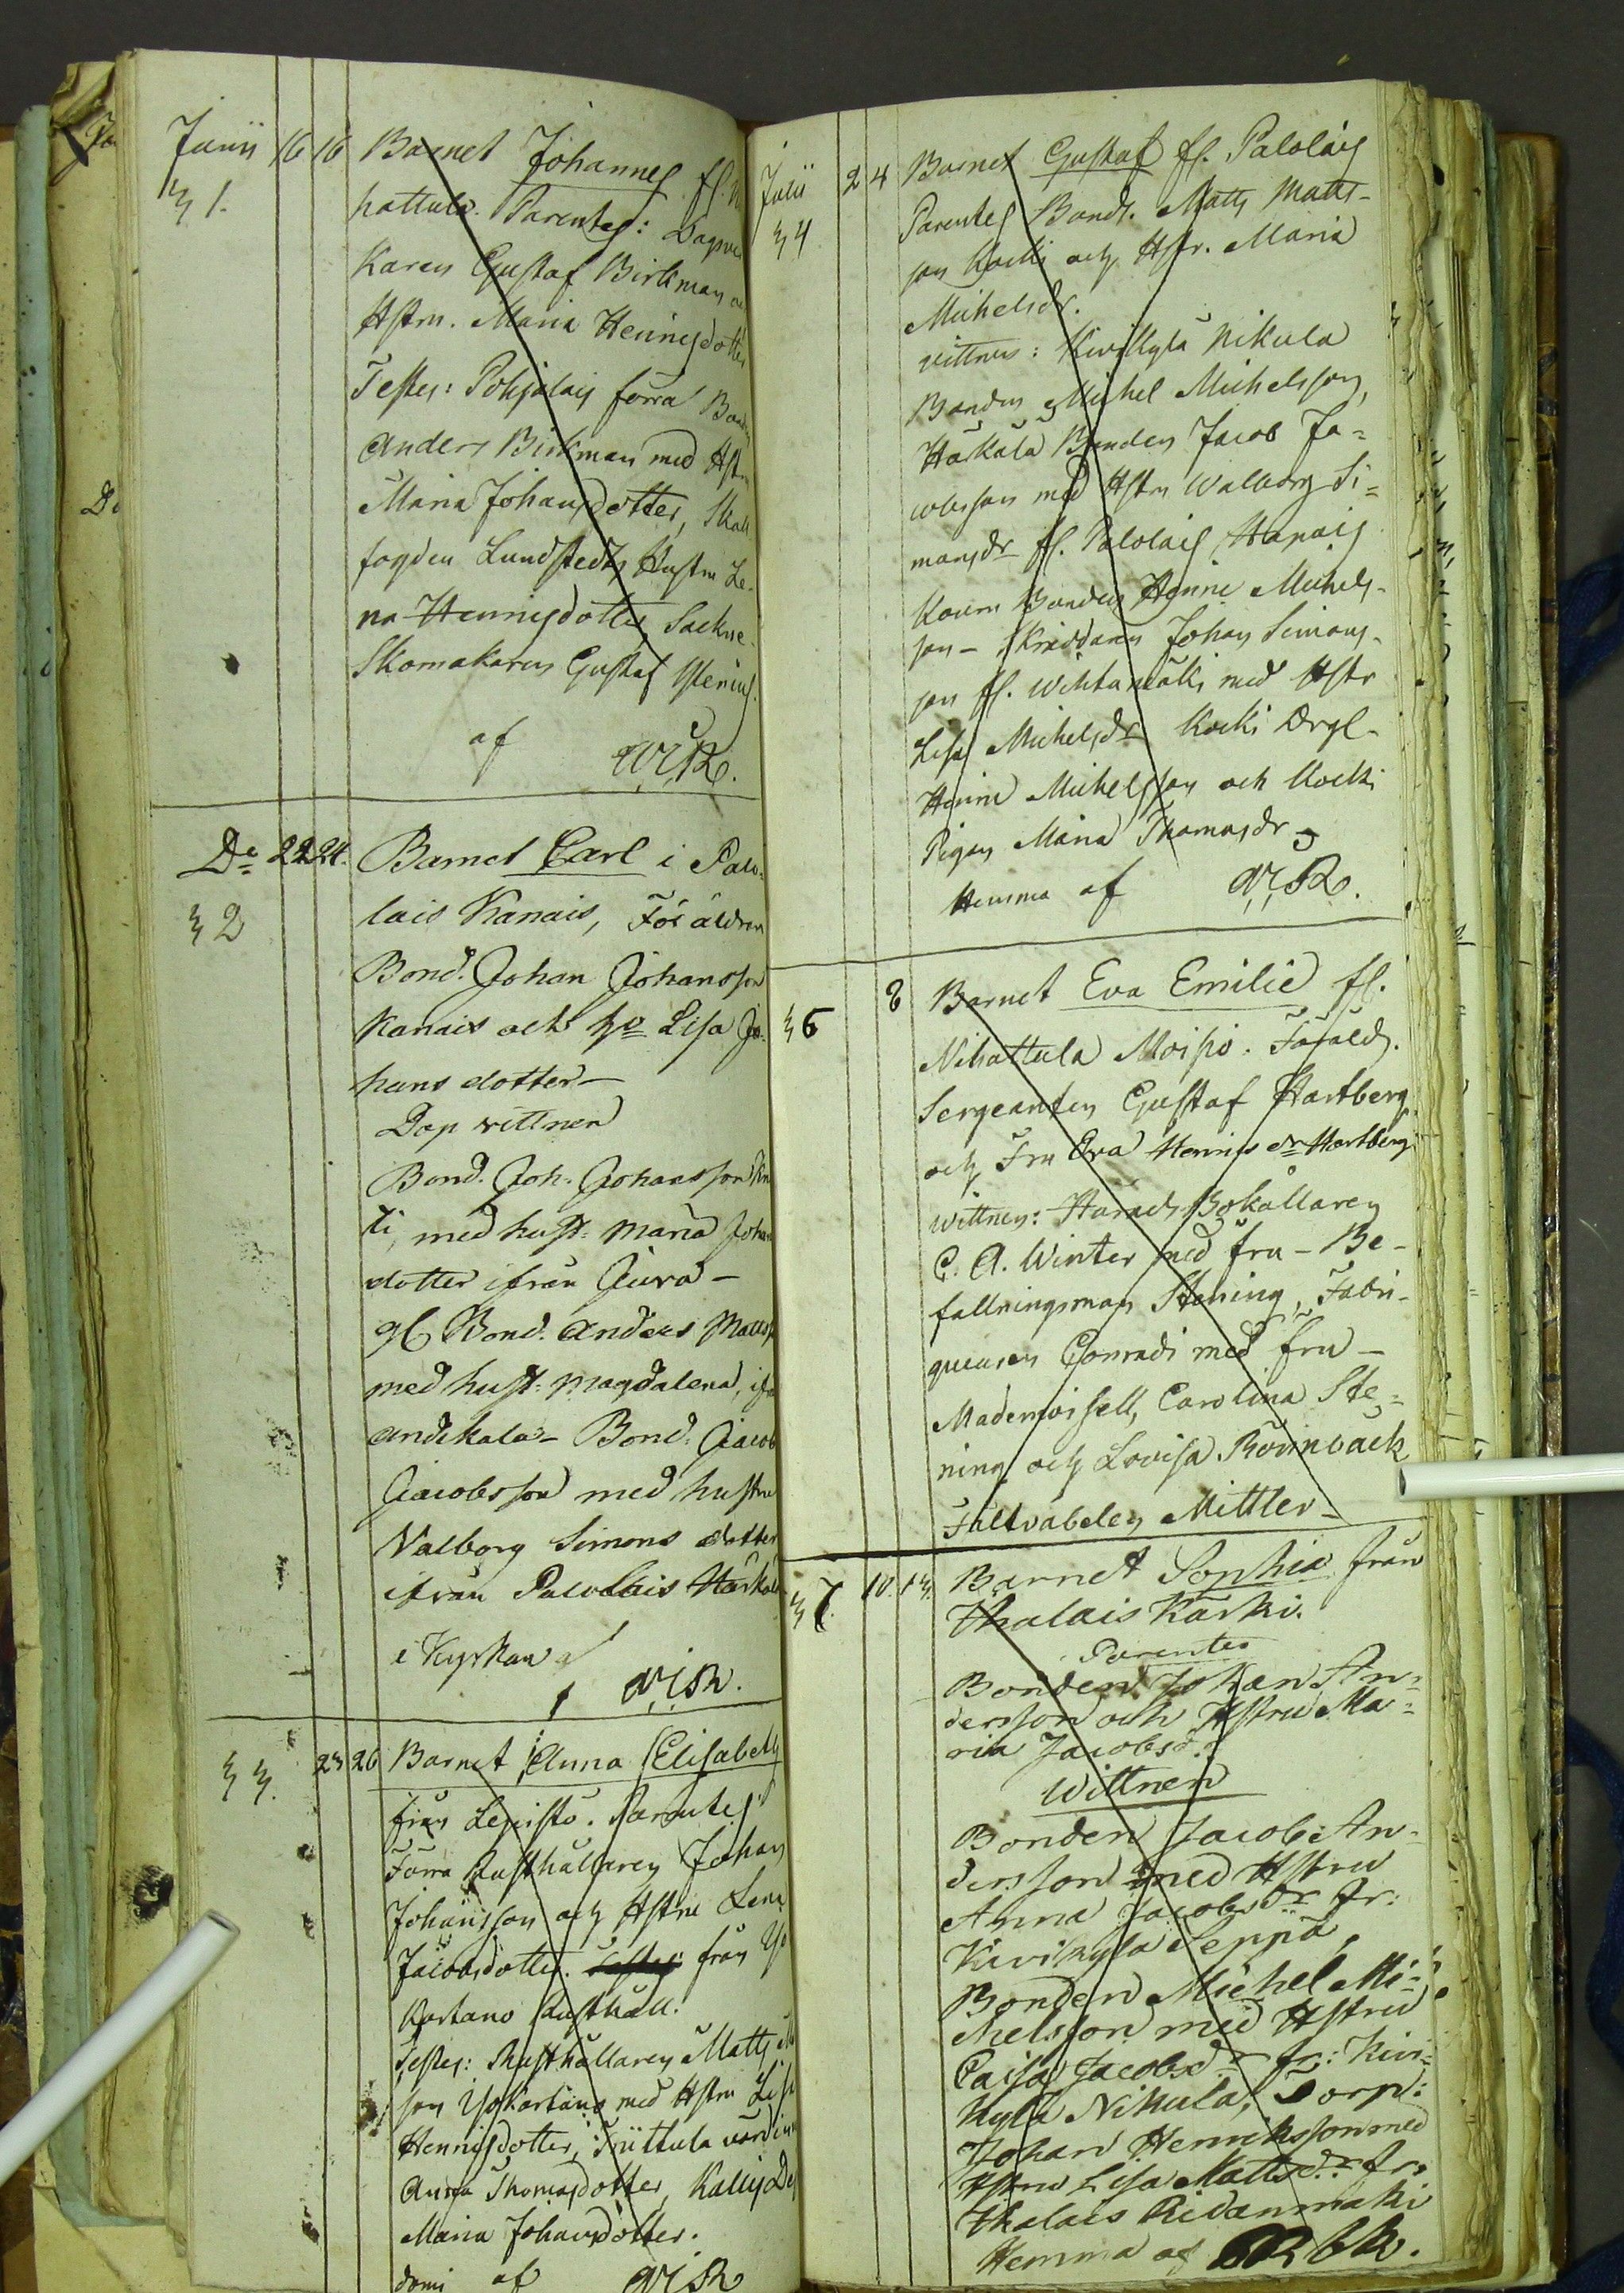 Junii 16 16 Barnet Johannes fr. N
§ 1. hattula. Parentes: Dagsver
karen Gustaf Birkman o
Hstrn. Maria Henriksdotter
Testes: Pohjalais förra Bonden
Anders Birkman med Hstr
Maria Johansdotter, Skall
fogden Lundstedts Hustru Le-
na Henricsdotter,
Skomakaren Gustaf
af WSR.
Do 22 24. Barnet Carl i Palo-
§ 2 lais Kanais, Föräldrar
Bond. Johan Johansson
Kanais och Ho Lisa Jo-
hans dotter –
Dop vittnen
Bond. Joh. Johansson
ti, med hust: Maria Johans
dotter ifrån Aura –
gl Bond. Anders Matts
med hust: Magdalena, ifr
andikala – Bond. Jacob
Jacobsson med hustru
Valborg Simons dotter
ifrån Palolais Härkäl
i Kyrkan af
WSR.
§ 3. 23 26 Barnet Anna Elisabeth
från Lepistö. Parentes
Förra Rusthållaren Johan
Johansson och Hstru Lena
Jacobsdotter. från Yli
Kartano Rusthåll.
Testes: Rusthållaren Matts
son Yliskartano med Hstru Lisa
Henricsdotter, Truttula värdinn
Anna Thomasdotter,
Maria Johansdotter.
domi af WSR
Julii 2 4 Barnet Gustaf fr. Palolais
§ 4 Parentes Bond. Matts Matts-
son Kocki och Hstr. Maria
Michelsdr.
vittnen: Kivikylä Nikula
Bonden Michel Michelsson,
Härkälä Bonden Jacob Ja-
cobsson med Hstru Walborg Si-
monsdr fr. Palolais Hanais
Bonden Henric Michels-
son – Skräddaren Johan Simons-
son fr. Wihtamäki med Hstr
Lisa Michelsdr Kocki Drgl.
Henric Michelsson och Kocki
Pigan Maria Thomasdr
Hemma af WSR.
§ 6 8 Barnet Eva Emilie fr.
Nihattula Moisio. Föräldr.
Sergeanten Gustaf Hartberg
och Fru Eva Henrics dr Hartberg
Wittnen: Härads Bokållaren
C. A. Winter med fru – Be-
fallningsman Stening, Fabri-
queuren Conradi med fru –
Mademoisell, Carolina Ste-
ning och Lovisa Rönnbäck
Fältväbelen Mittler –
§ 7. 10. 13. Barnet Sophia från
Ihalais Karhi.
Parentes
Bonden Johan An-
dersson och Hstru Ma-
ria Jacobsd:r
Wittnen
Bonden Jacob An-
dersson med Hstru
Anna Jacobsdr fr:
Kivikylä Seppä,
Bonden Michel Mi-
chelsson med Hstru
Caisa Jacobsdr fr: Kivi-
kylä Nikula, Torp:
Johan Henriksson med
Hstru Lisa Mattsdr fr:
Ihalais Ridanmäki
Hemma af